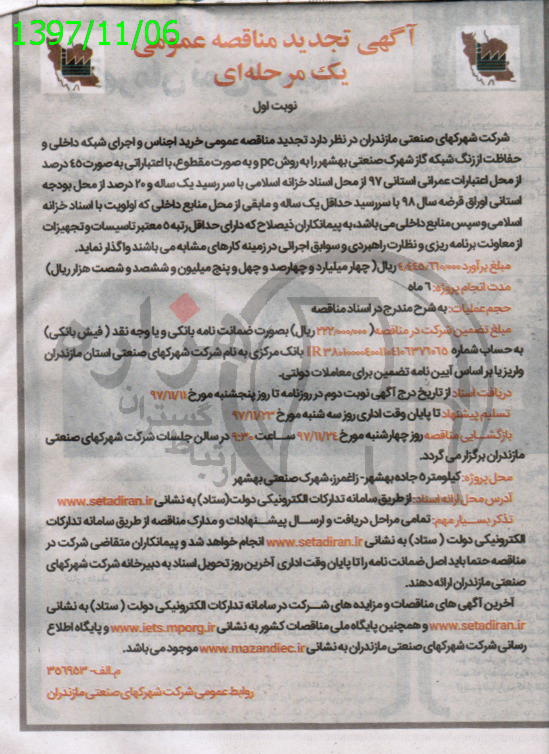 1397/11/06
آگهی تجدید مناقصه عمومی
یک مرحله‌ای
نوبت اول
شرکت شهرکهای صنعتی مازندران در نظر دارد تجدید مناقصه عمومی خرید اجناس و اجرای شبکه داخلی و
حفاظت از زنگ شبکه گاز شهرک صنعتی بهشهر را به روش pc و به صورت مقطوع، با اعتباراتی به صورت ۴۵ درصد
از محل اعتبارات عمرانی استانی ۹۷ از محل اسناد خزانه اسلامی با سر رسید یک ساله و ۲۰ درصد از محل بودجه
استانی اوراق قرضه سال ۹۸ با سررسید حداقل یک ساله و مابقی از محل منابع داخلی که اولویت با اسناد خزانه
اسلامی و سپس منابع داخلی می باشد، به پیمانکاران ذیصلاح که دارای حداقل رتبه ۵ معتبر تاسیسات و تجهیزات
از معاونت برنامه ریزی و نظارت راهبردی و سوابق اجرائی در زمینه کارهای مشابه می باشند واگذار نماید.
مبلغ برآورد: ۴/۴۴۵/۶۶۰/۰۰۰ ریال( چهار میلیارد و چهارصد و چهل و پنج میلیون و ششصد و شصت هزار ریال)
مدت انجام پروژه: ۶ ماه
حجم عملیات: به شرح مندرج در اسناد مناقصه
مبلغ تضمین شرکت در مناقصه( ۲۲۲/۰۰۰/۰۰۰ ریال) بصورت ضمانت نامه بانکی و یا وجه نقد ( فیش بانکی)
به حساب شماره بانک مرکزی به نام شرکت شهرکهای صنعتی استان مازندران
واریز یا بر اساس آیین نامه تضمین برای معاملات دولتی.
دریافت اسناد از تاریخ درج آگهی نوبت دوم در روزنامه تا روز پنجشنبه مورخ ۹۷/۱۱/۱۱
تسلیم پیشنهاد تا پایان وقت اداری روز سه شنبه مورخ ۹۷/۱۱/۲۳
بازگشایی مناقصه روز چهارشنبه مورخ ۹۷/۱۱/۲۴ ساعت ۹:۳۰ در سالن جلسات شرکت شهرکهای صنعتی
مازندران برگزار می گردد.
محل پروژه: کیلومتر ۵ جاده بهشهر- زاغمرز، شهرک صنعتی بهشهر
آدرس محل ارائه اسناد: از طریق سامانه تدارکات الکترونیکی دولت(ستاد) به نشانی www.setadiran.ir
تذکر بسیار مهم: تمامی مراحل دریافت و ارسال پیشنهادات و مدارک مناقصه از طریق سامانه تدارکات
الکترونیکی دولت ( ستاد) به نشانی www.setadiran.ir انجام خواهد شد و پیمانکاران متقاضی شرکت در
مناقصه حتما باید اصل ضمانت نامه را تا پایان وقت اداری آخرین روز تحویل اسناد به دبیرخانه شرکت شهرکهای
صنعتی مازندران ارائه دهند.
آخرین آگهی های مناقصات و مزایده های شرکت در سامانه تدارکات الکترونیکی دولت ( ستاد) به نشانی
www.setadiran.ir و همچنین پایگاه ملی مناقصات کشور به نشانی www.iets.mporg.ir و پایگاه اطلاع
رسانی شرکت شهرکهای صنعتی مازندران به نشانی www.mazandiec.ir موجود می باشد.
م.الف- ۳۵۶۹۵۳
روابط عمومی شرکت شهرکهای صنعتی مازندران
هزاره
گستران
ارتباط